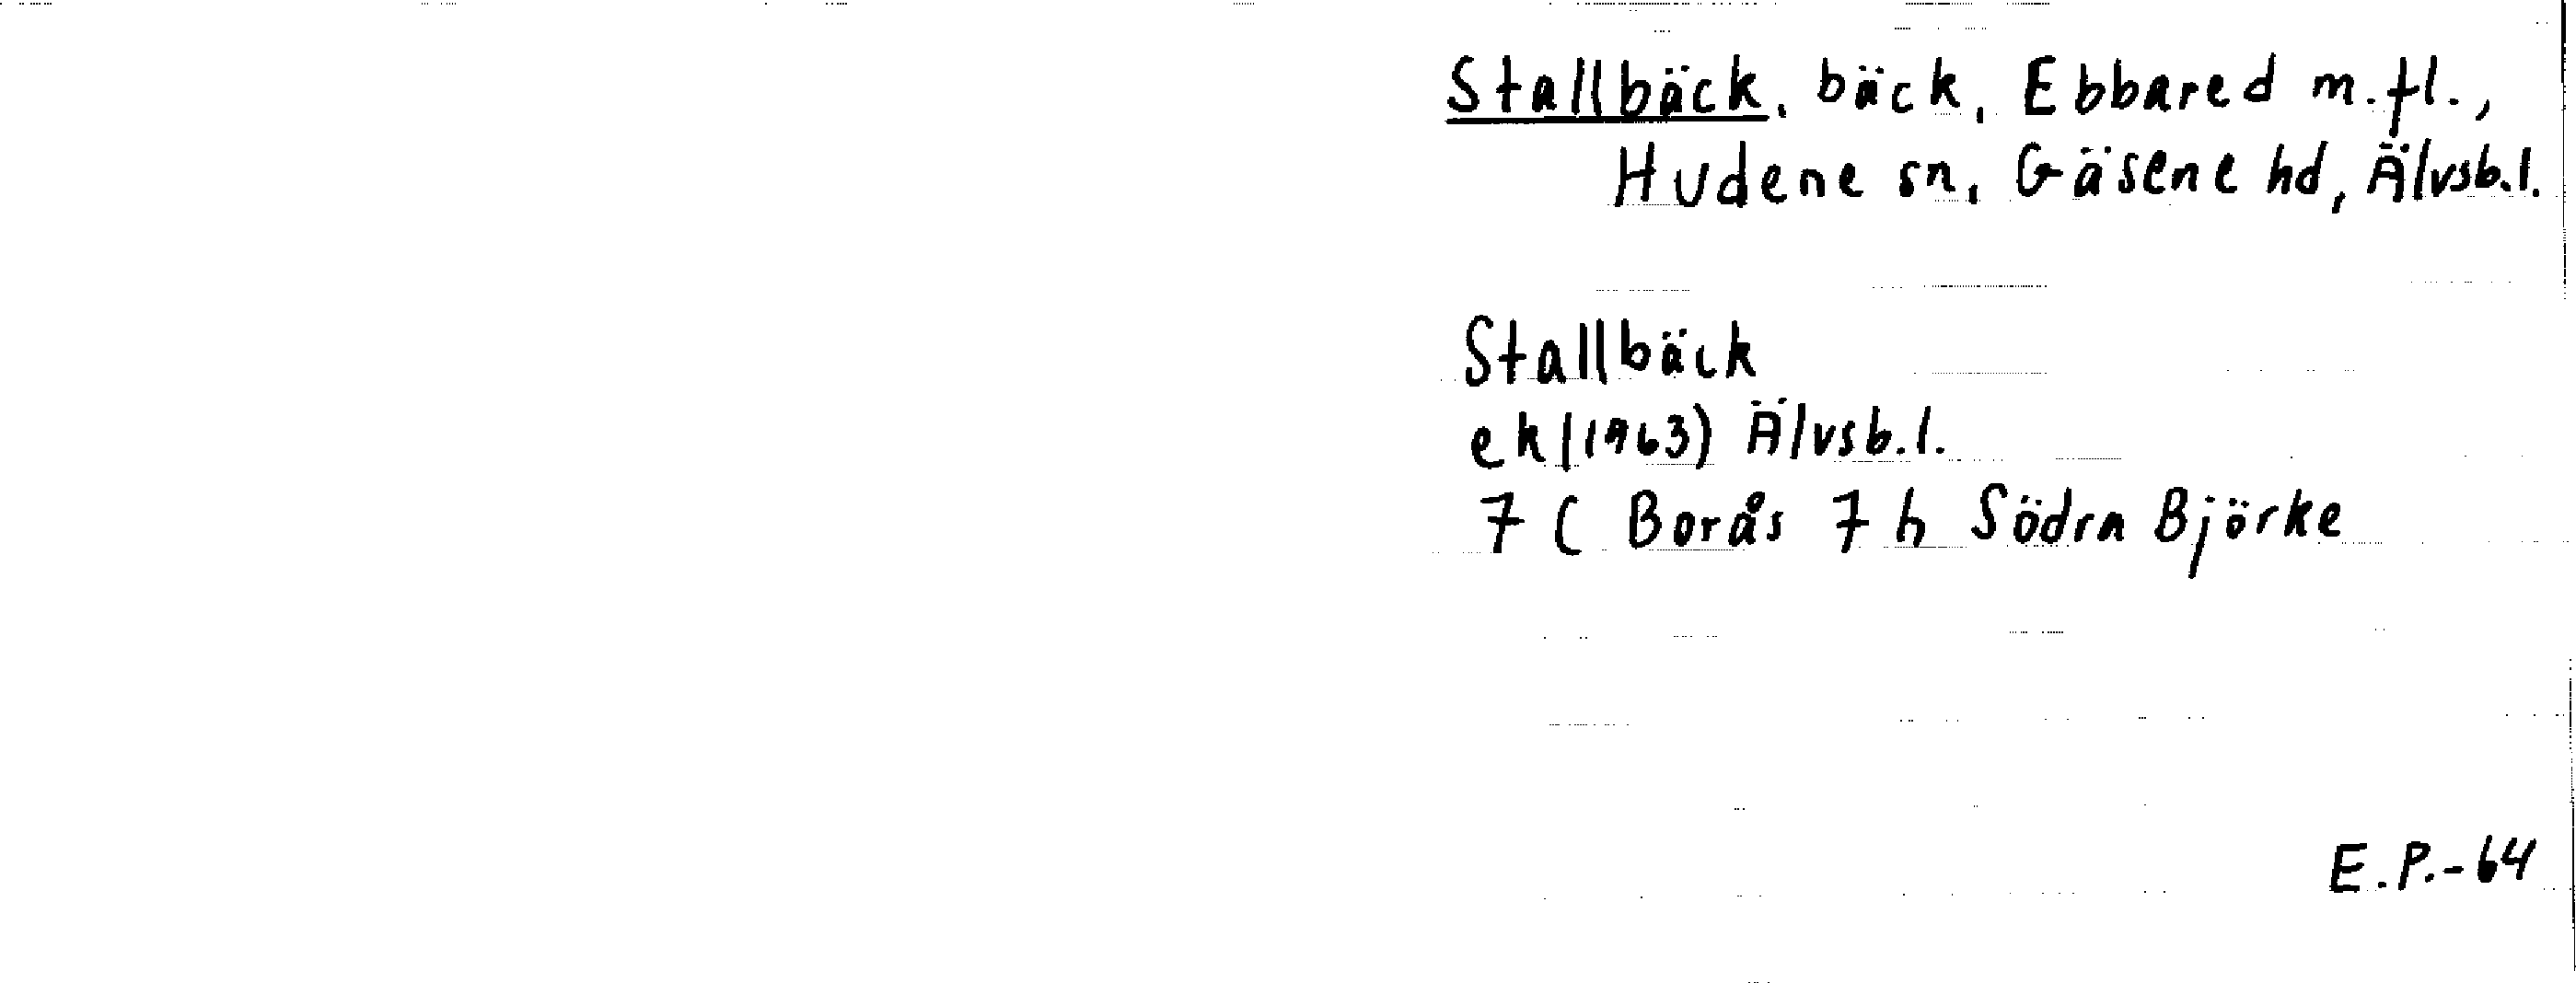 Stallbäck, bäck, Ebbared m.fl.,
Hudene sn, Gäsene hd, Älvsb.l.
Stallbäck
ek (1963) Älvsb.l.
7 C Borås 7 h Södra Björke
E.P.-64